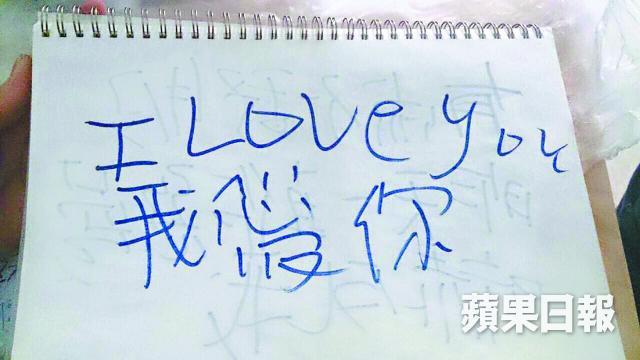 I LOVe you
我愛你
蘋果日報